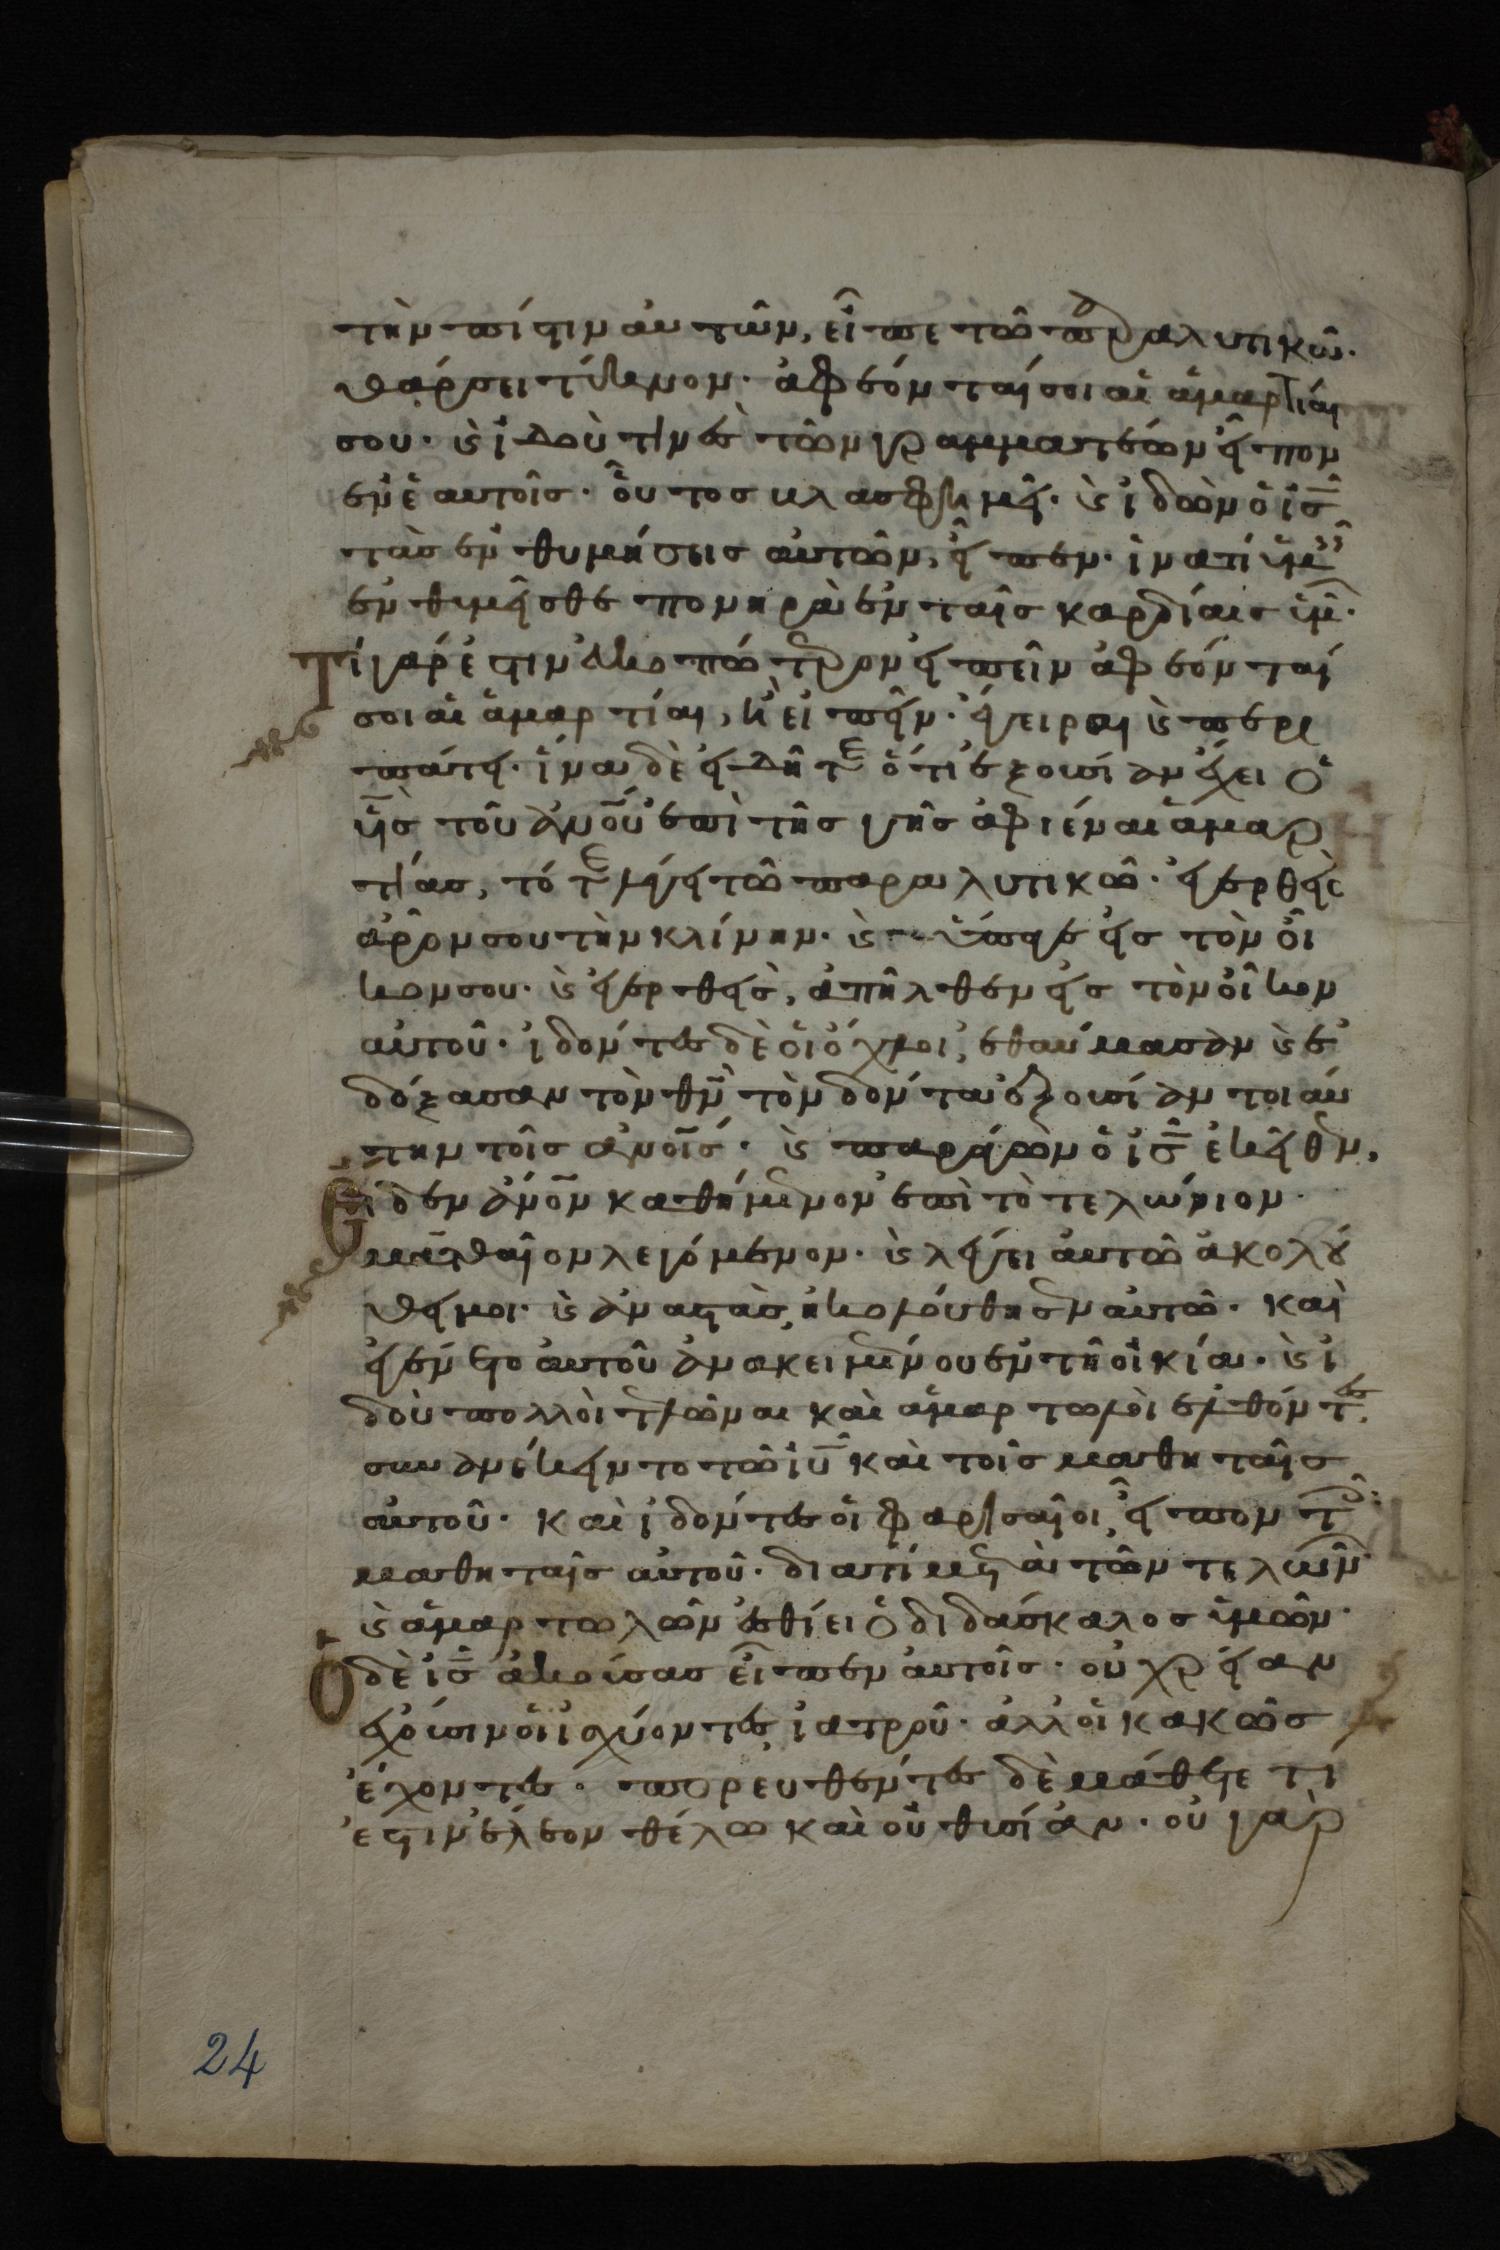 τὴν πίστιν αὐτῶν, εἶπε τῶ παραλυτικῶ.
θάρσει τέκνον. ἀφέωνταί σοι αἱ ἁμαρτίαι
σου. καὶ ἰδοὺ τινὲς τῶν γραμματέων εἶπον
ἐν ἑαυτοῖς. οὗτος βλασφημεῖ. καὶ ἰδὼν ὁ ἰς̅
τὰς ἐνθυμήσεις αὐτῶν, εἶπεν. ἱνατί ὑμεῖς
ἐνθυμεῖσθε πονηρὰ ἐν ταῖς καρδίαις ὑμῶν.
Τί γάρ ἐστιν εὐκοπώτερον εἰπεῖν ἀφέωνταί
σοι αἱ ἁμαρτίαι, ἢ εἰπεῖν. ἔγειραι καὶ περι
πάτει. ἵνα δὲ εἰδῆτε ὅτι ἐξουσίαν ἔχει ὁ
υἱς̅ τοῦ ἀνο̅υ̅ ἐπὶ τῆς γῆς ἀφιέναι ἁμαρ
τίας, τότε λέγει τῶ παραλυτικῶ. ἐγερθεὶς
ἆρόν σου τὴν κλίνην. καὶ ὕπαγε εἰς τὸν οἶ
κον σου. καὶ ἐγερθεὶς, ἀπῆλθεν εἰς τὸν οἶκον
αὐτοῦ. ἰδόντες δὲ οἱ ὄχλοι, ἐθαύμασαν καὶ ἐ
δόξασαν τὸν θν̅ τὸν δόντα ἐξουσίαν τοιαύ
την τοῖς ἀνο̅ι̅ς. καὶ παράγων ὁ ἰς̅ ἐκεῖθεν,
Εἶδεν ἀνο̅ν καθήμενον ἐπὶ τὸ τελώνιον.
ματθαῖον λεγόμενον. καὶ λέγει αὐτῶ ἀκολού
θει μοι. καὶ ἀναστὰς, ἠκολούθησεν αὐτῶ. καὶ
ἐγένετο αὐτοῦ ἀνακειμένου ἐν τῆ οἰκία. καὶ ἰ
δοὺ πολλοὶ τελῶναι καὶ ἁμαρτωλοὶ ἐλθόντες
συνανέκειντο τῶ ἰυ̅ καὶ τοῖς μαθηταῖς
αὐτοῦ. καὶ ἰδόντες οἱ φαρισαῖοι, εἶπον τοῖς
μαθηταῖς αὐτοῦ. διατί μετὰ τῶν τελωνῶν
καὶ ἁμαρτωλῶν ἐσθίει ὁ διδάσκαλος ὑμῶν.
Ὁ δὲ ἰς̅ ἀκούσας εἶπεν αὐτοῖς. οὐ χρείαν
ἔχουσιν οἱ ἰσχύοντες ἰατροῦ. ἀλλ' οἱ κακῶς
ἔχοντες. πορευθέντες δὲ μάθετε τί
ἐστιν ἔλεον θέλω καὶ οὐ θυσίαν. οὐ γὰρ
24